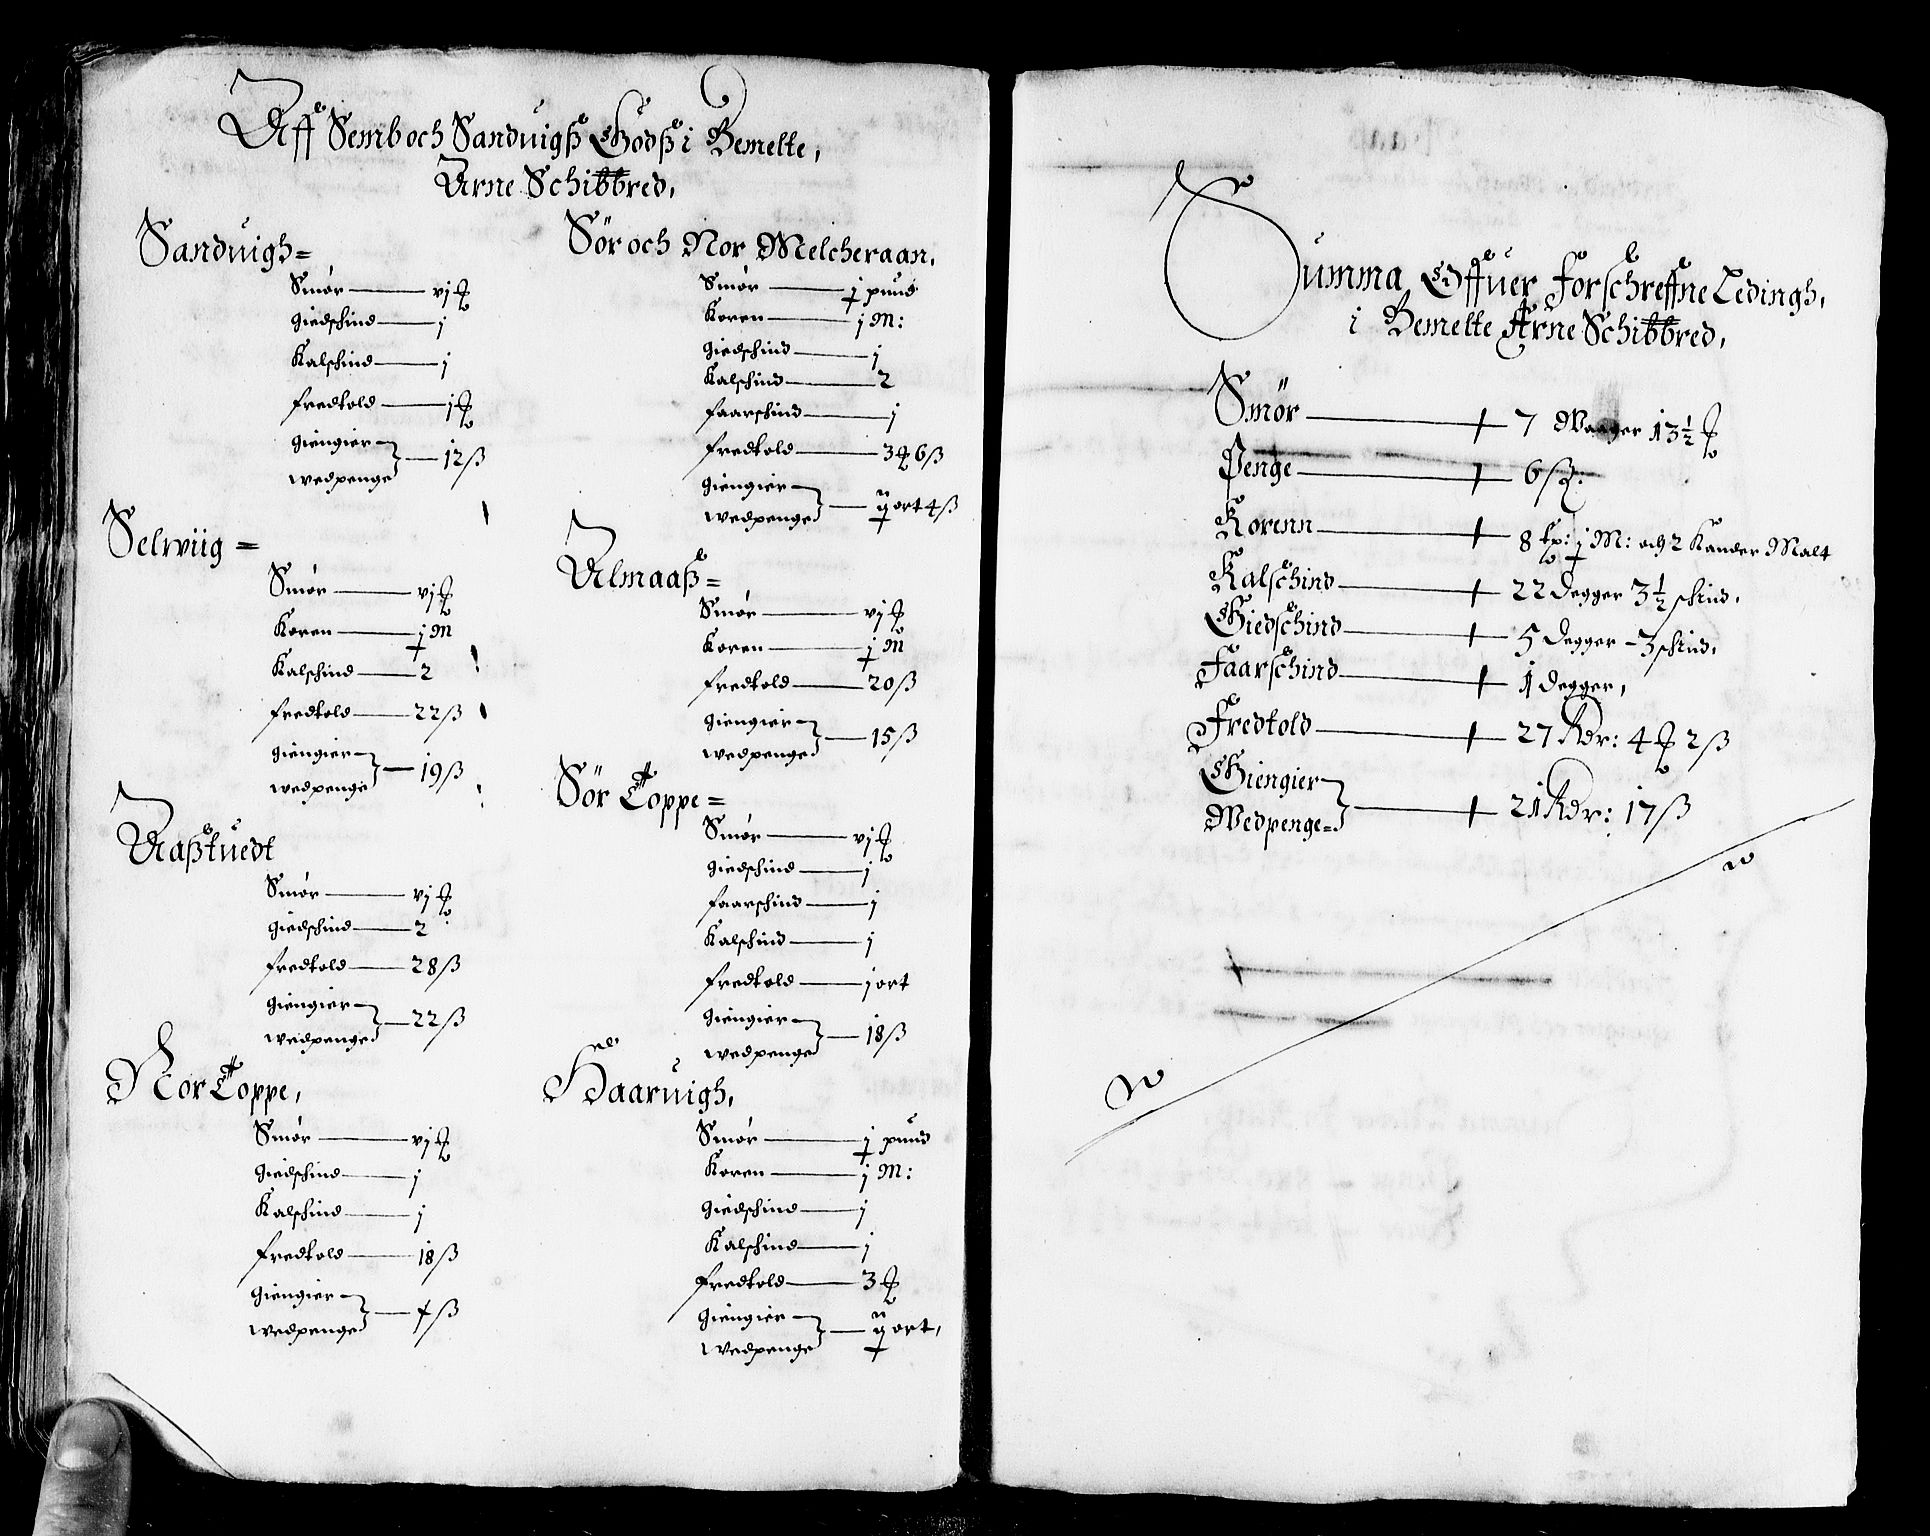 Aff Semb och Sanduigß Godß i Bemelte,
Arne Schibbred,
Sanduigh=
Smør — vj ℔
Giedschind — j
Kalschind — j
Fredtold — j ℔
Giengier
wedpenge — 12 ß
Selwiig =
Smør — vj ℔
Koren — j M
Kalschind — 2
Fredtold — 22 ß
Giengier
wedpenge — 19 ß
Raßtuedt
Smør — vj ℔
Giedschind — 2
Fredtold — 28 ß
Giengier
wedpenge — 22 ß
Nor Toppe,
Smør — vj ℔
Giedschind — j
Kalschind — j
Fredtold — 18 ß
Giengier
wedpenge — ß
Sör och Nor Melcheraan,
Smør — j pund
Koren — j M:
Giedschind — j
Kalschind — 2
Faarschind — j
Fredtold — 3 ℔ 6 ß
Giengier
wedpenge — ort 4 ß
Almaaß=
Smør — vj ℔
Koren — j M
Fredtold — 20 ß
Giengier
wedpenge — 15 ß
Sör Toppe=
Smør — vj ℔
Giedschind — j
Faarschind — j
Kalschind — j
Fredtold — j ort
Giengier
wedpenge — 18 ß
Haaruigh,
Smør — j pund
Koren — j M:
Giedschind — j
Kalschind — j
Fredtold — 3 ℔
Giengier
wedpenge — ort,
Summa Offuer Forschreffne Ledingh,
i Bemelte Arne Schibbred,
Smör — 7 Waager 13½ ℔
Penge — 6 ß:
Korenn — 8 tp: j M: och 2 Kander Malt
Kalschind — 22 Degger 3½ schind,
Giedschind — 5 Degger – 3 schind,
Faarschind — 1 Degger,
Fredtold — 27 Rdr: 4 ℔ 2 ß
Giengier
Wedpenge= — 21 Rdr: 17 ß